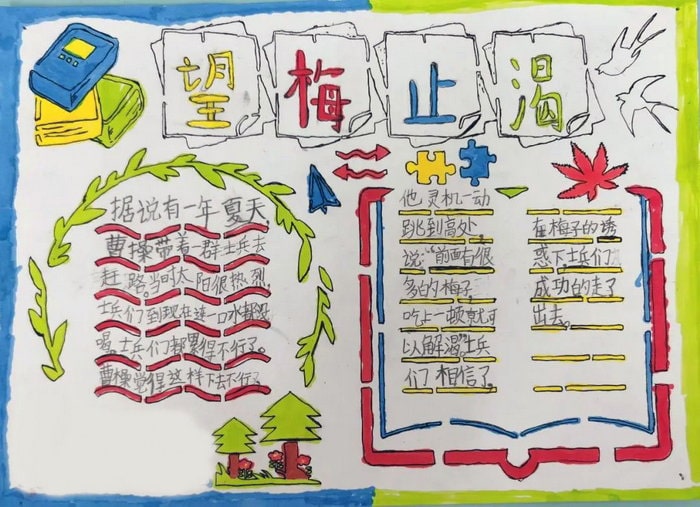 望梅止渴
据说有一年夏天
曹操带着一群士兵去
赶路。当时太阳很热烈,
士兵们到现在连一口水都没
喝,士兵们都累得不行了。
曹操觉得这样下去不行了
他,灵机一动
跳到高处,
说:“前面有很
多的梅子,
吃上一顿就可
以解渴。”士兵
们相信了。
在梅子的诱
惑下,士兵们
成功的走了
出去。